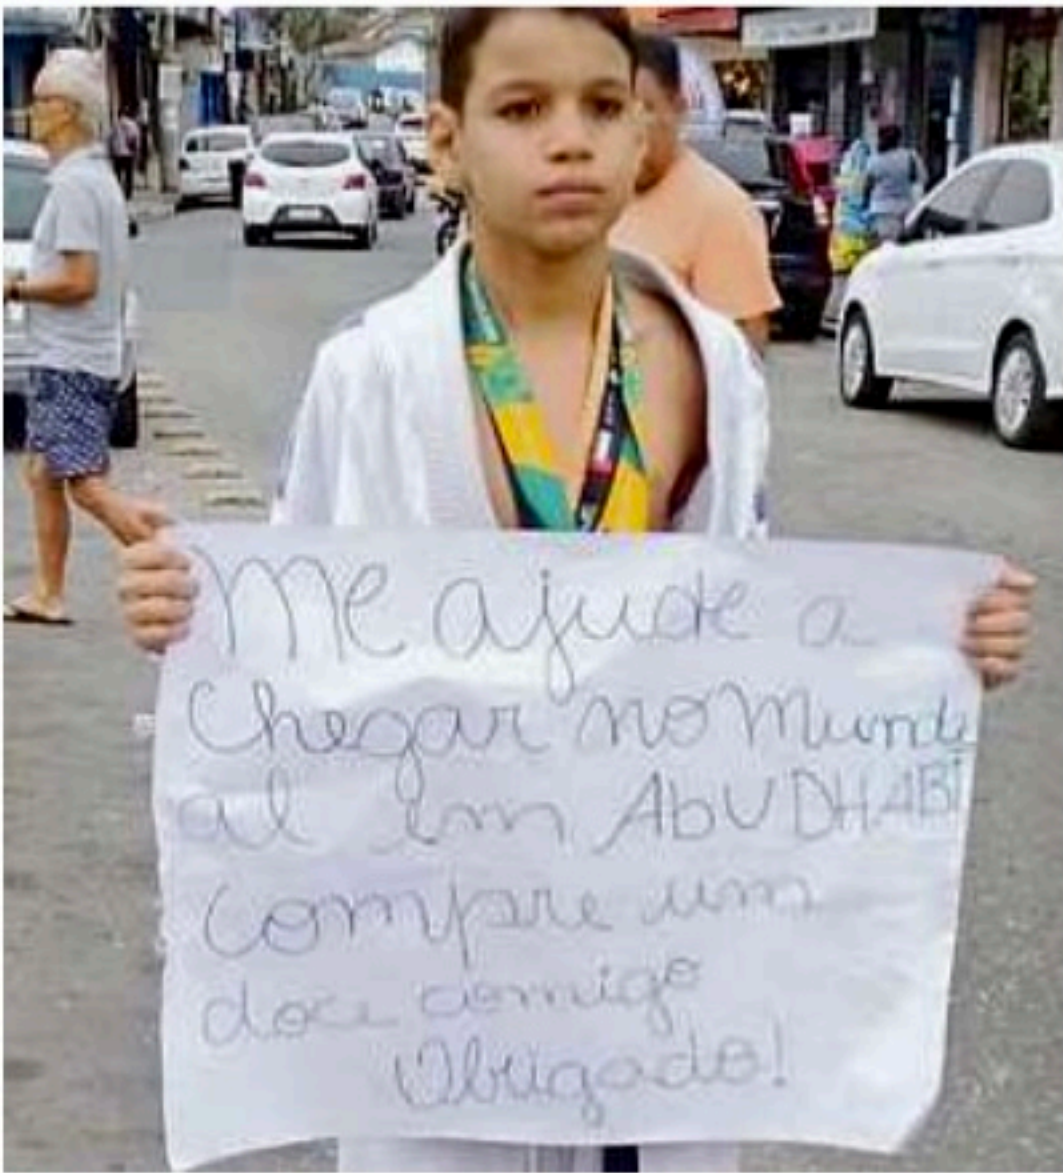 Me ajude a
Chegar no Mundi
al em AbUDHABi
Compre um
doce comigo
Obrigado!